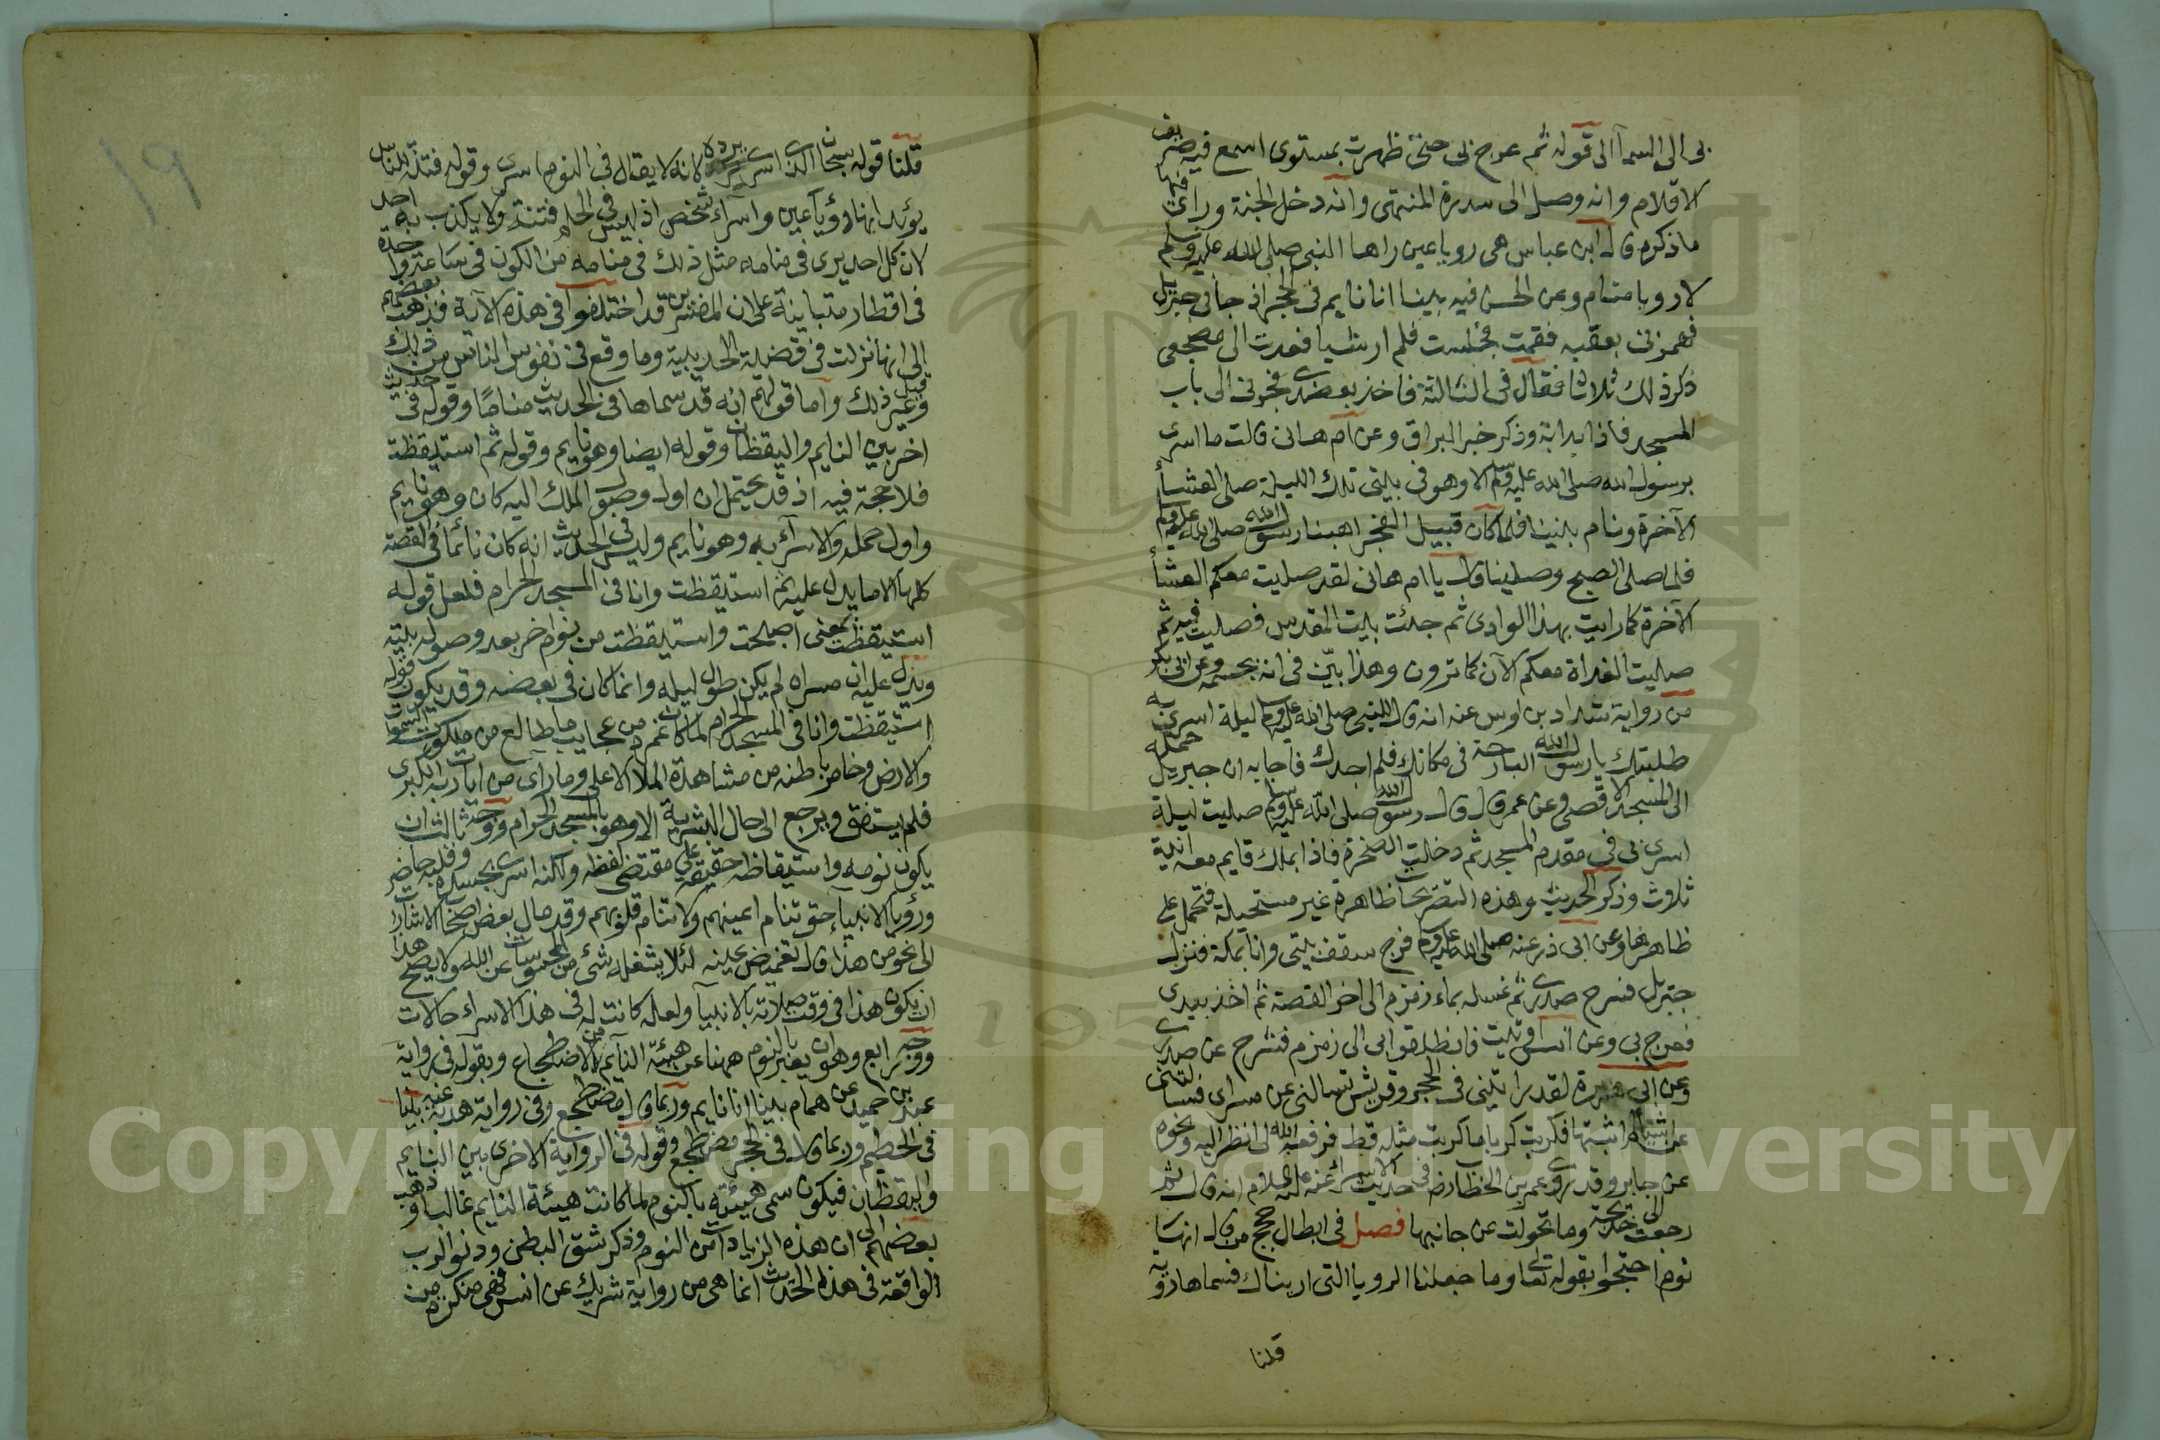 بى الى السمآ الى قوله ثم عرج بى حتى ظهرت بمستوى اسمع فيه صريف
الاقلام وانه وصل الى سدرة المنتهى وانه دخل الجنة وراى فيها
ما ذكره قال ابن عباس هى رويا عين راها النبى صلى الله عليه وسلم
لا رويا منام وعن الحسن فيه بينا انا نايم فى الحجر اذ جانى جبريل
فهمزنى بعقبه فقمت فجلست فلم ار شيا فعدت الى مضجعى
ذكر ذلك ثلاثا فقال فى الثالثة فاخذ بعضدى فجرنى الى باب
المسجد فاذا بدابة وذكر خبر البراق وعن ام هانى قالت ما اسرى
برسول الله صلى الله عليه وسلم الا وهو فى بيتى تلك الليلة صلى العشأ
الآخرة ونام بيننا فلما كان قبيل الفجر اهبنا رسول الله صلى الله عليه وسلم
فلما صلى الصبح وصلينا قال يا ام هانى لقد صليت معكم العشأ
الآخرة كما رايت بهذا الوادى ثم جئت بيت المقدس فصليت فيه ثم
صليت الغداة معكم الآن كما ترون وهذا بيّن فى انه بجسمه وعن ابى بكر
من رواية شداد بن اوس عنه انه قال للنبى صلى الله عليه وسلم ليلة اسرى به
طلبتك يا رسول الله البارحة فى مكانك فلم اجدك فاجابه ان جبريل حمله
الى المسجد الاقصى وعن عمر قال قال رسول الله صلى الله عليه وسلم صليت ليلة
اسرى بى فى مقدم المسجد ثم دخلت الصخرة فاذا بملك قايم معه انية
ثلاث وذكر الحديث وهذه التصريحات ظاهرة غير مستحيلة فتحمل على
ظاهرها وعن ابى ذر عنه صلى الله عليه وسلم فرج سقف بيتى وانا بمكة فنزل
جبريل فشرح صدرى ثم غسله بماء زمزم الى اخر القصة ثم اخذ بيدى
فعرج بى وعن انس اتيت فانطلقوا بى الى زمزم فشرح عن صدرى
وعن ابى هريرة لقد رايتنى فى الحجر وقريش تسالنى عن مسراى فسالتنى
عن اشيا لم اثبتها فكربت كربا ما كربت مثله قط فرفعه الله لى انظر اليه ونحوه
عن جابر وقد روى عمر بن الخطاب رضى فى حديث الاسراء عنه عليه السلام انه قال ثم
رجعت الى خديجة وما تحولت عن جانبها فصل فى ابطال حجج من قال انها
نوم احتجوا بقوله تعا وما جعلنا الرويا التى اريناك فسماها رؤيا
قلنا
١٩
قلنا قوله سبحان الذى اسرى يرده لانه لا يقال فى النوم اسرى وقوله فتنة للناس
يؤيد انها رؤيآ عين واسراء شخص اذ ليس فى الحلم فتنة ولا يكذب به احد
لان كل احد يرى فى منامه مثل ذلك فى منامه من الكون فى ساعة واحدة
فى اقطار متباينة على ان المفسرين قد اختلفوا فى هذه الآية فذهب بعضهم
الى انها نزلت فى قضية الحديبية وما وقع فى نفوس الناس من ذلك
وقيل غير ذلك واما قولهم انه قد سماها فى الحديث مناما وقوله فى حديث
اخر بين النايم واليقظان وقوله ايضا وهو نايم وقوله ثم استيقظت
فلا حجة فيه اذ قد يحتمل ان اول وصول الملك اليه كان وهو نايم
واول حمله والاسرآء به وهو نايم وليس فى الحديث انه كان نائما فى القصة
كلها الا ما يدل عليه ثم استيقظت وانا فى المسجد الحرام فلعل قوله
استيقظت بمعنى اصبحت واستيقظت من نوم اخر بعد وصوله بيته
ويدل عليه ان مسراه لم يكن طول ليله وانما كان فى بعضه وقد يكون قوله
استيقظت وانا فى المسجد الحرام لما كان غمره من عجايب ما طالع من ملكوت السموات
والارض وخامر باطنه من مشاهدة الملا الاعلى وما رآى من ايات ربه الكبرى
فلم يستفق ويرجع الى حال البشرية الا وهو بالمسجد الحرام ووجه ثالث ان
يكون نومه واستيقاظه حقيقة على مقتضى لفظه ولكنه اسرى بجسده وقلبه حاضر
ورؤيا الانبيآء حق تنام اعينهم ولا تنام قلوبهم وقد مال بعض اصحاب الاشارات
الى نحو من هذا قال تغميض عينه لئلا يشغله شئ من المحسوسات عن الله ولا يصح هذا
ان يكون هذا فى وقت صلاته بالانبيآ ولعله كانت له فى هذا الاسراء حالات
ووجه رابع وهو ان يعبر بالنوم ههنا عن هيئة النآيم من الاضطجاع وبقوله فى رواية
عبد بن حميد عن همام بينا انا نايم وربما قال مضطجع وفى رواية هدبة عنه بينا
فى الحطيم وربما قال فى الحجر مضطجع وقوله فى الرواية الاخرى بين النايم
واليقظان فيكون سمى هيئته بالنوم لما كانت هيئة النايم غالبا وذهب
بعضهم الى ان هذه الزيادات من النوم وذكر شق البطن ودنو الرب
الواقعة فى هذا الحديث انما هى من رواية شريك عن انس فهى منكرة من
Copyright © King Saud University
1957